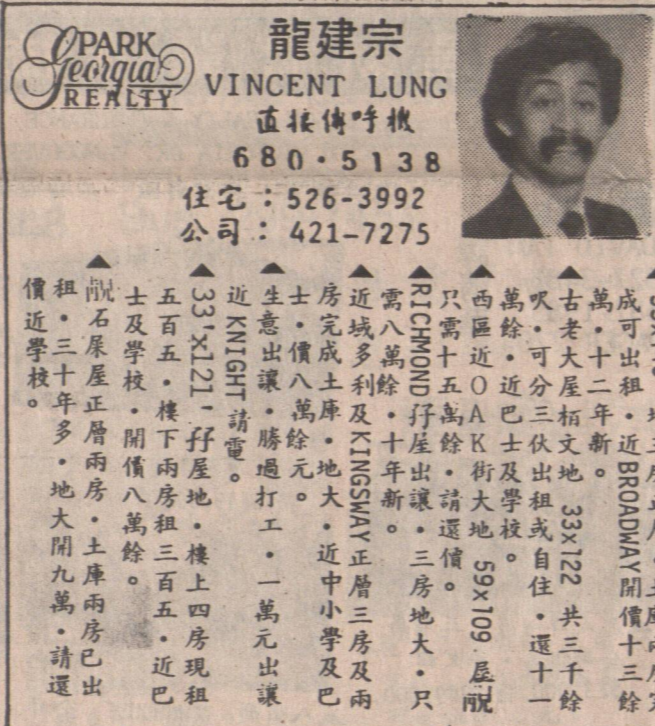 PARK
Georgia
REALTY
龍建宗
VINCENT LUNG
直接傳呼機
680·5138
住宅：526-3992
公司：421-7275
成可出租·近BROADWAY開價十三餘
萬·十二年新。
▲古老大屋栢文地 33x122 共三千餘
呎·可分三伙出租或自住·還十一
萬餘·近巴士及學校。
▲西區近OAK街大地 59x109.屋靚
只需十五萬餘·請還價。
▲RICHMOND孖屋出讓·三房地大·只
需八萬餘·十年新。
▲近域多利及KINGSWAY正層三房及兩
房完成土庫·地大·近中小學及巴
士·價八萬餘元。
▲生意出讓·勝過打工·一萬元出讓
近KNIGHT請電。
▲33'x121'孖屋地·樓上四房現租
五百五·樓下兩房租三百五·近巴
士及學校·開價八萬餘。
▲靚石屎屋正層兩房·土庫兩房已出
租·三十年多·地大開九萬·請還
價近學校。